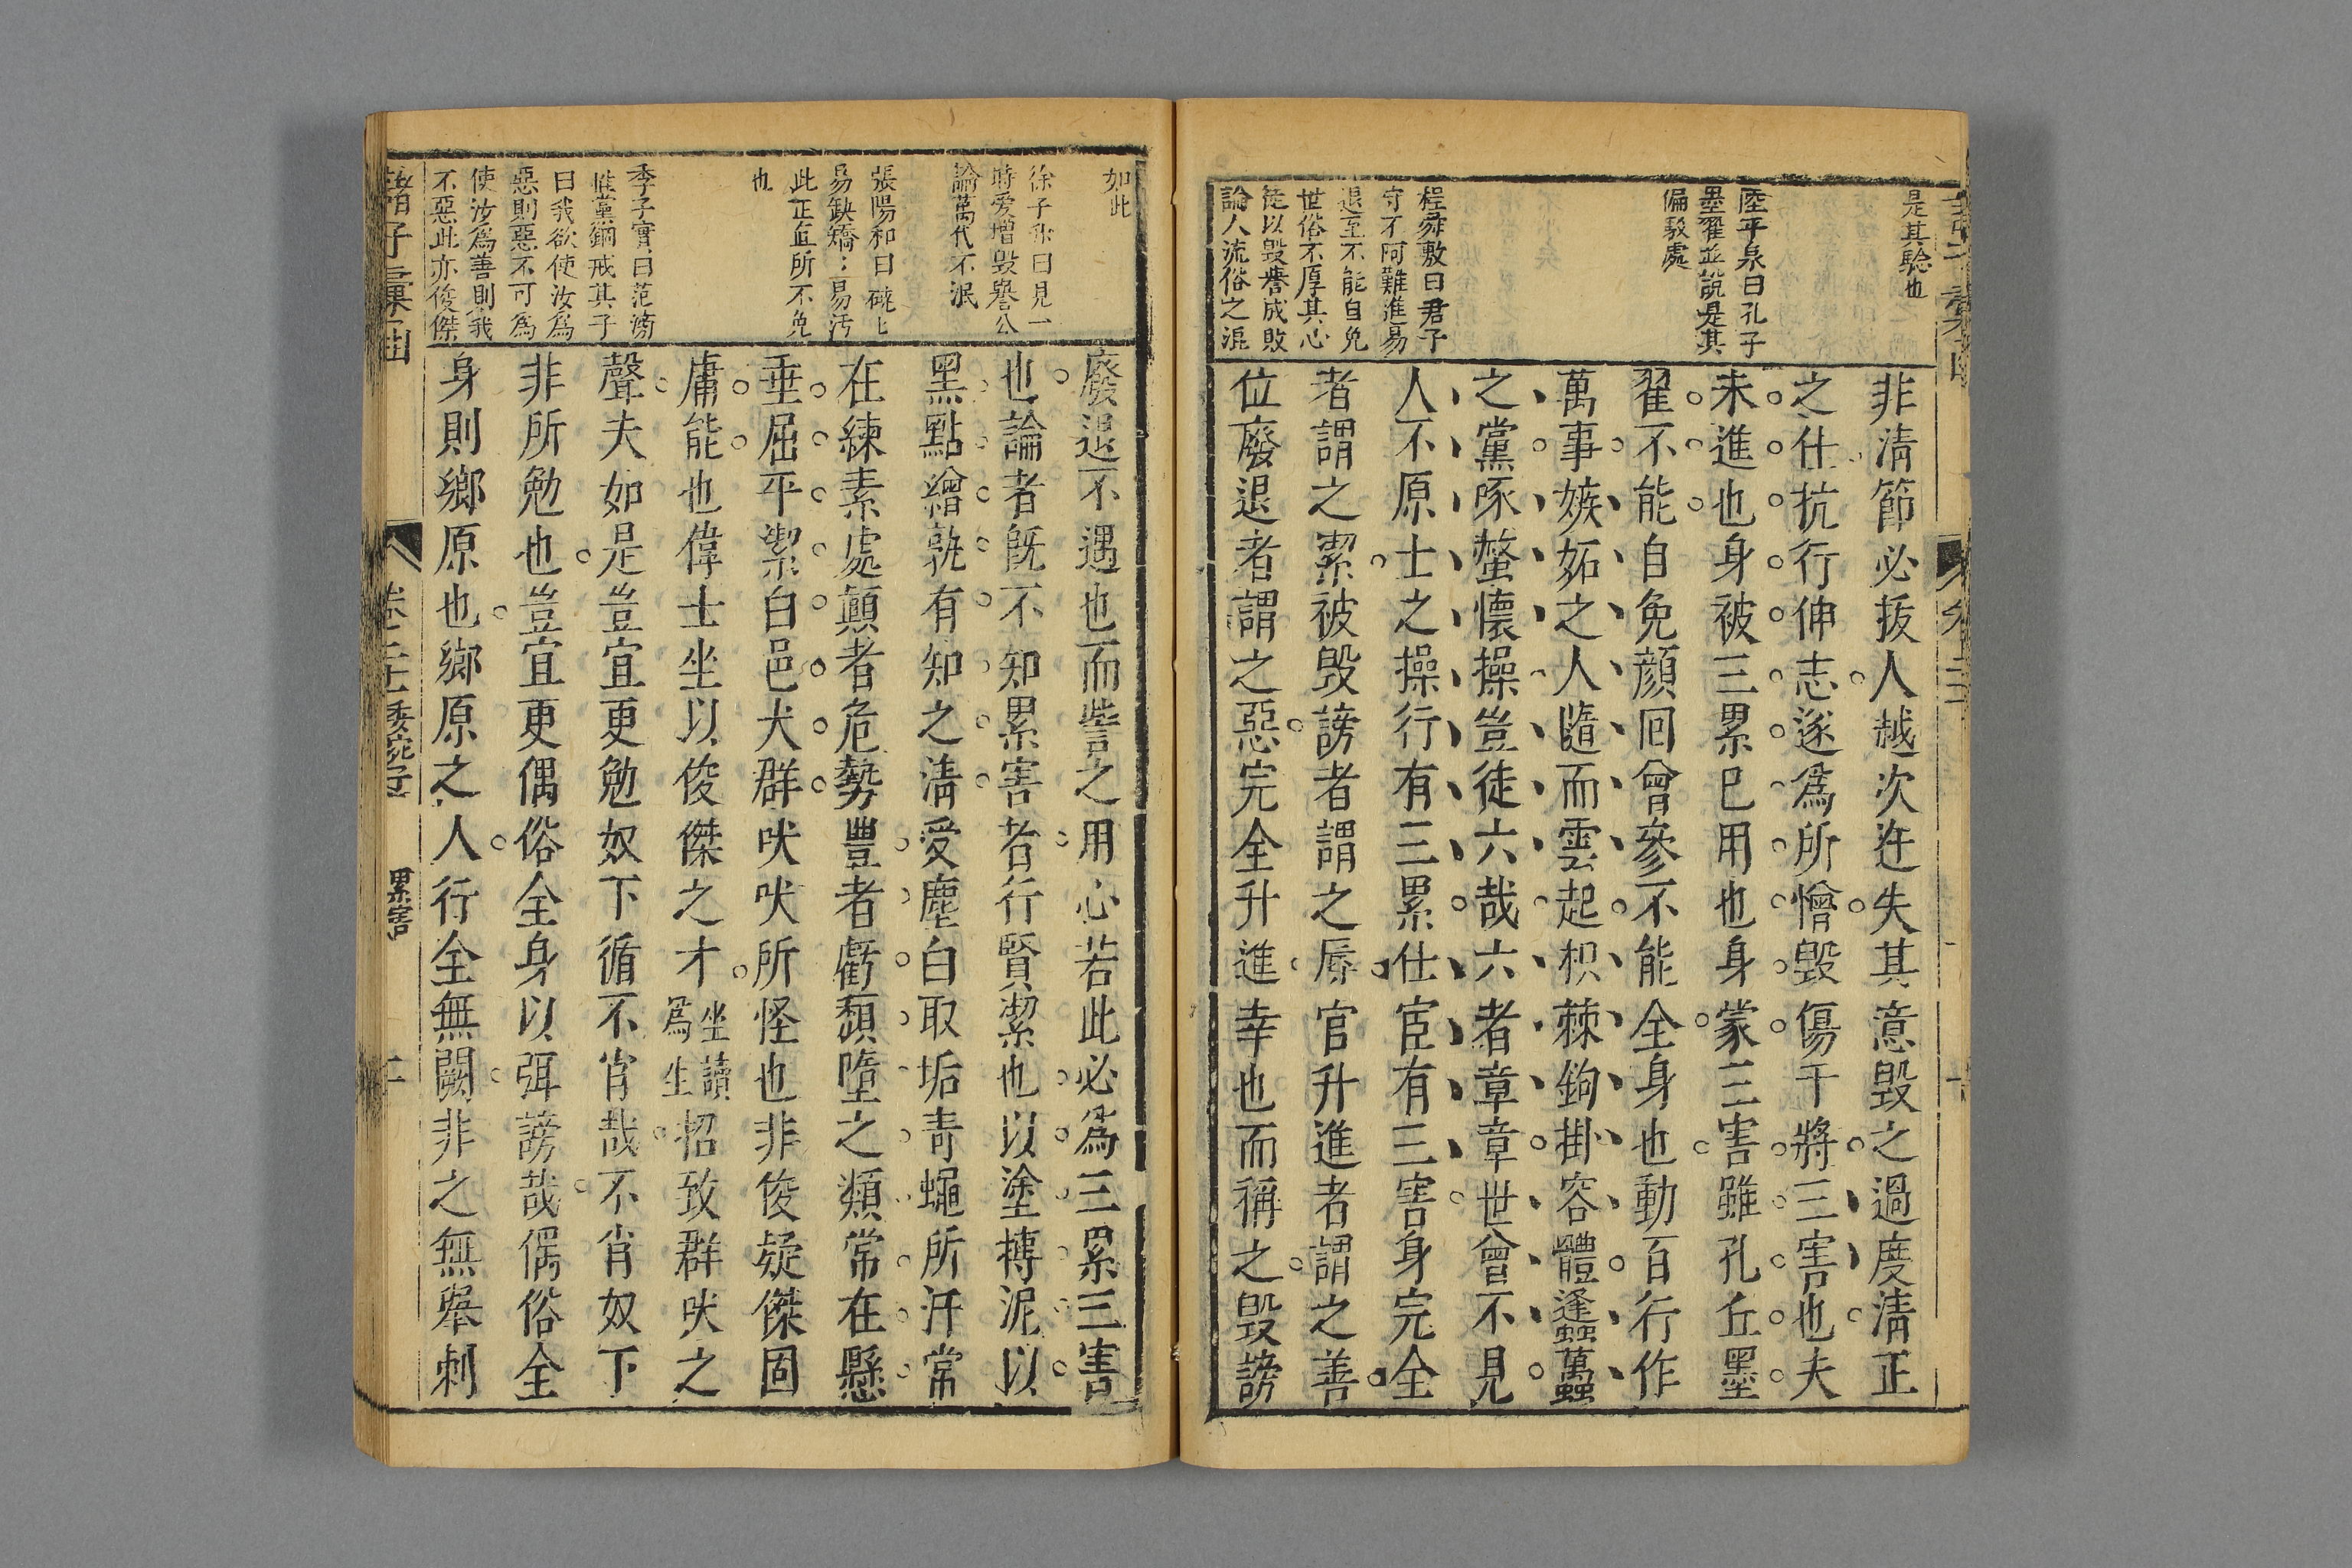 是其驗也
陸平泉曰孔子
墨翟並說是其
偏駁處
程舜敷曰君子
守不阿難進易
退至不能自免
世俗不厚其心
徒以毀譽成敗
論人流俗之混
非清節必拔人越次迕失其意毀之過度清正
之仕抗行伸志遂爲所憎毀傷干將三害也夫
未進也身被三累已用也身蒙三害雖孔丘墨
翟不能自免顏回曾參不能全身也動百行作
萬事嫉妬之人隨而雲起枳棘鉤掛容體蠭蠆
之黨啄螫懷操豈徒六哉六者章章世曾不見
人不原士之操行有三累仕宦有三害身完全
者謂之潔被毀謗者謂之辱官升進者謂之善
位廢退者謂之惡完全升進幸也而稱之毀謗
如此
徐子卿曰見一
時愛憎毀譽公
論萬代不泯
張陽和曰磽ヒ
易缺矯ヒ易汚
此正直所不免
也
季子實曰范滂
惟黨錮戒其子
曰我欲使汝爲
惡則惡不可爲
使汝爲善則我
不惡此亦俊傑
廢退不遇也而訾之用心若此必爲三累三害
也論者旣不知累害者行賢潔也以塗搏泥以
黑點繒孰有知之清受塵白取垢青蠅所汙常
在練素處顚者危勢豐者虧頹墮之類常在懸
垂屈平潔白邑犬群吠吠所怪也非俊疑傑固
庸能也偉士坐以俊傑之才坐讀爲生招致群吠之
聲夫如是豈宜更勉奴下循不肖哉不肖奴下
非所勉也豈宜更偶俗全身以弭謗哉偶俗全
身則鄉原也鄉原之人行全無闕非之無舉刺
諸子彙函
卷二十 委宛子
累害
二